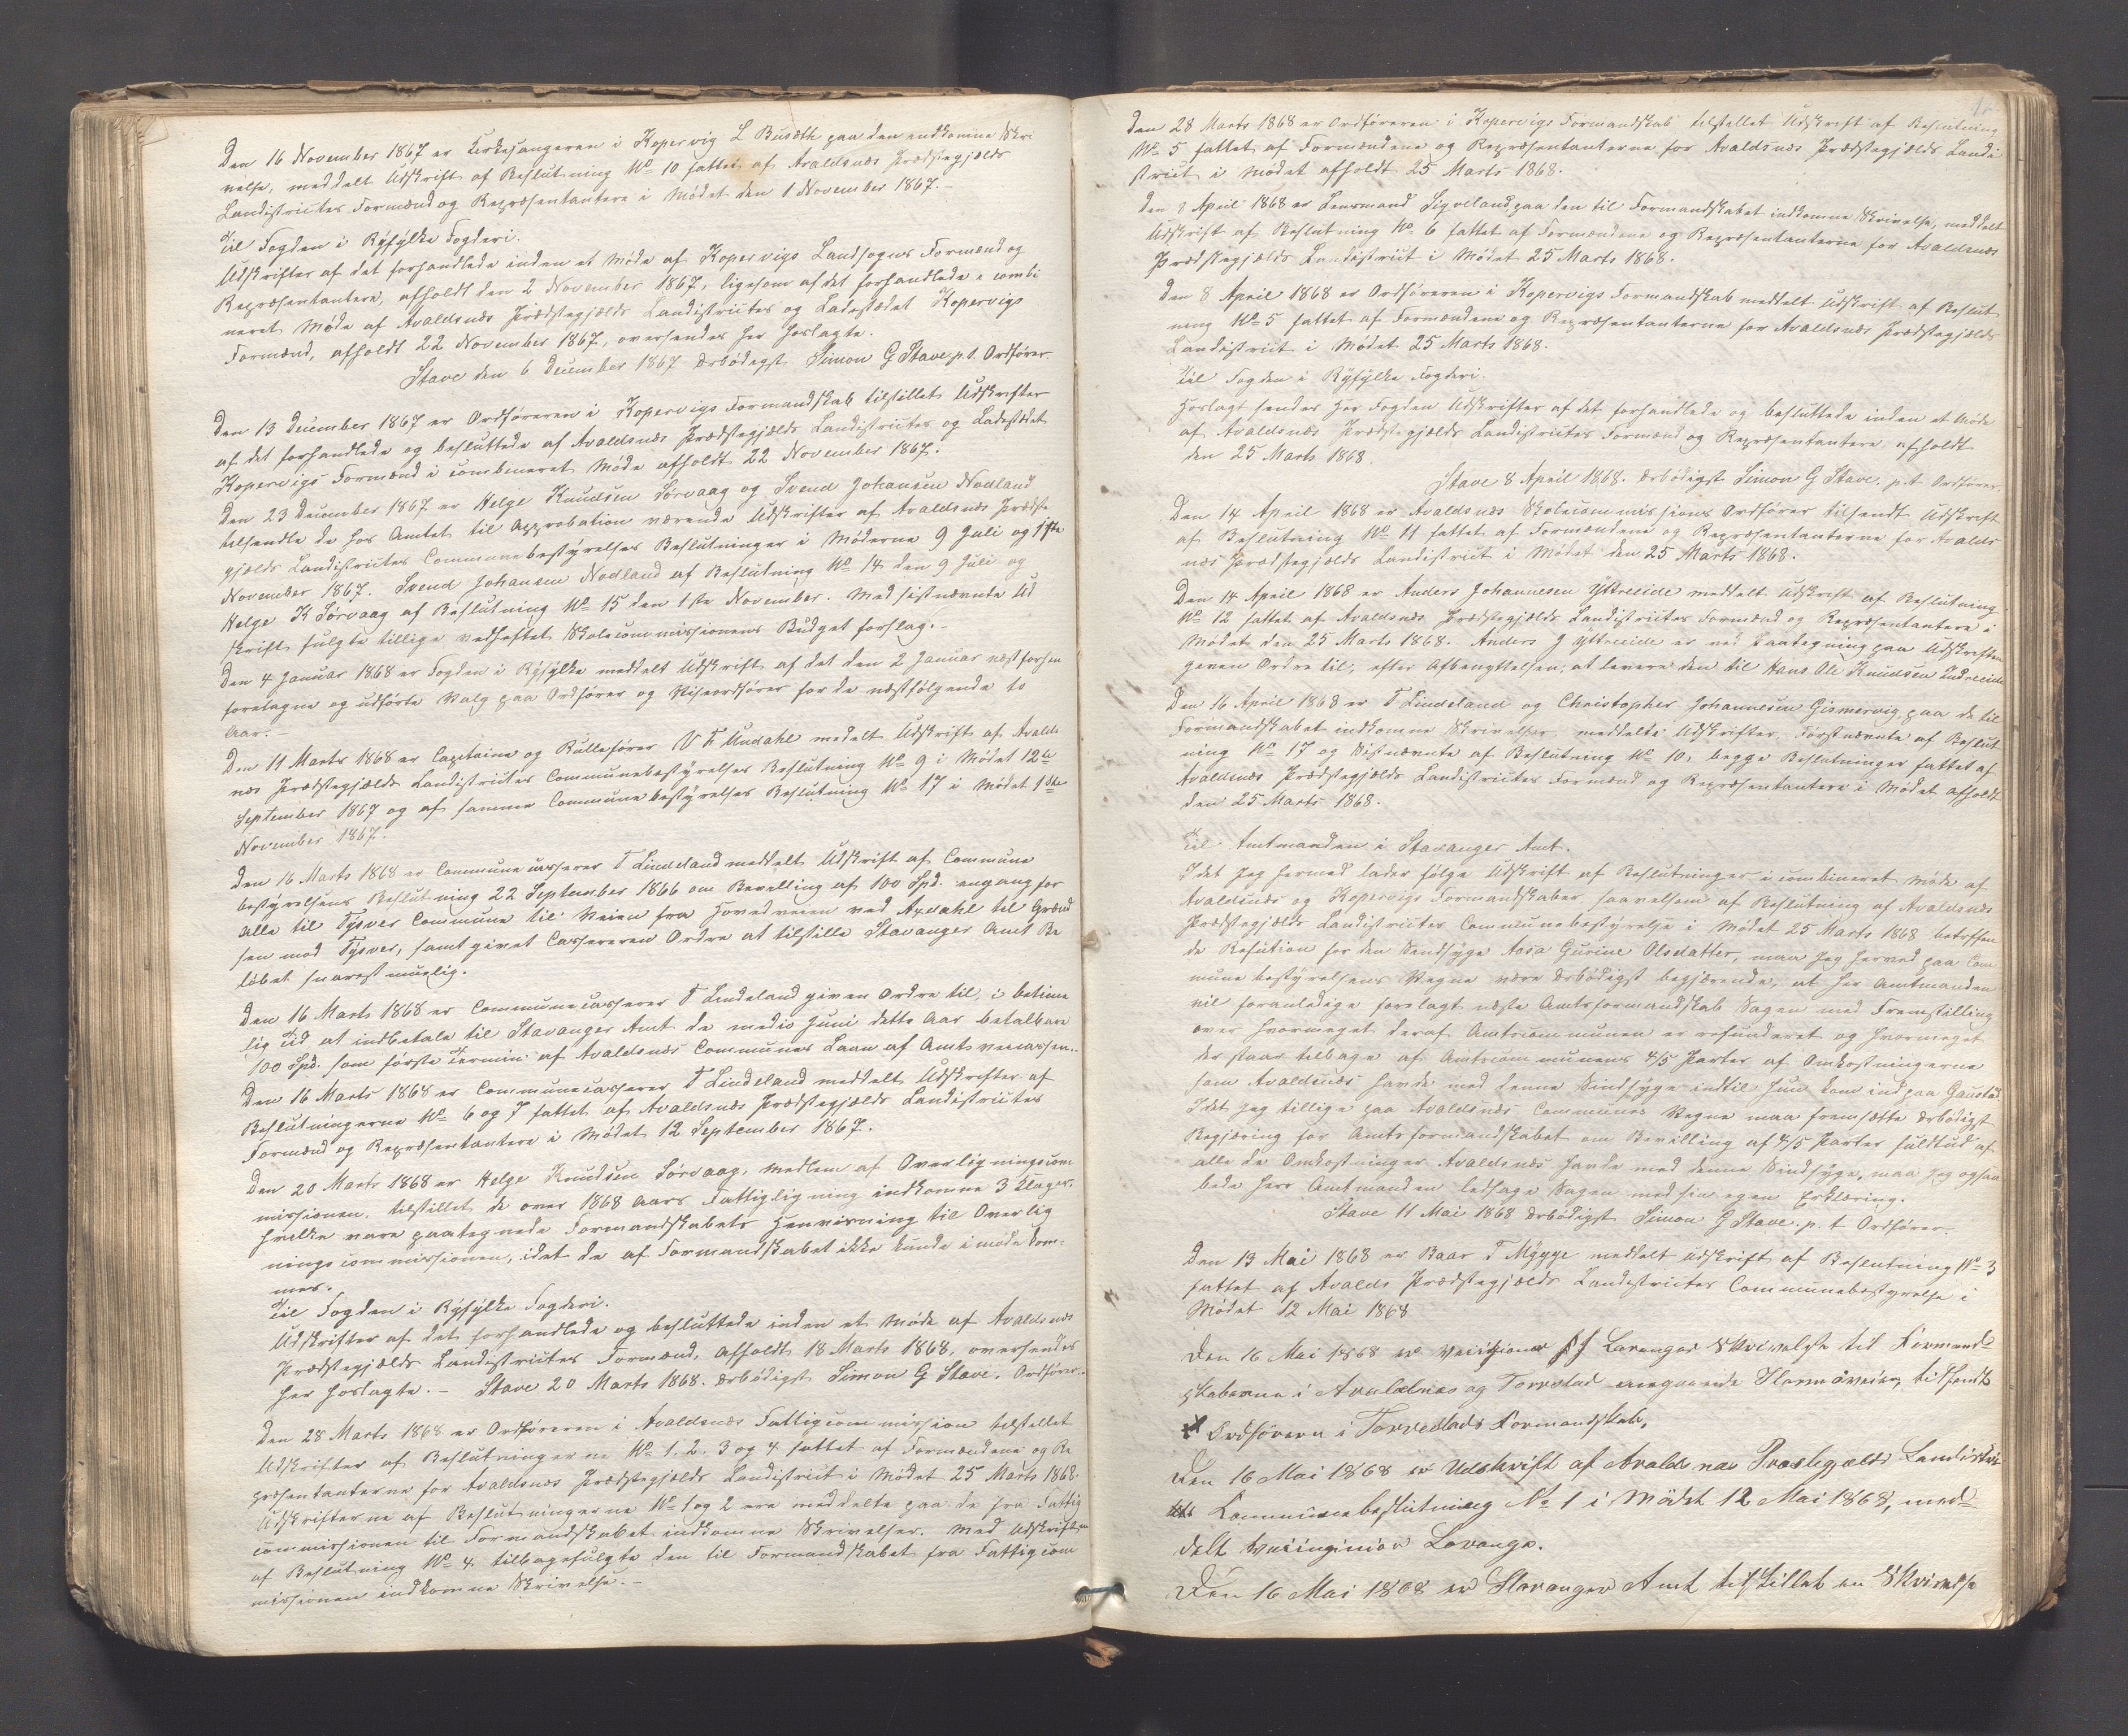 Den 16 November 1867 er Kirkesangeren i Kopervig L Busæth paa den indkomne Skri
velse, meddelt Udskrift af Beslutning No 10 fattet af Avaldsnæs Prædstegjælds
Landistrictes Formænd og Repræsentantere i Mødet den 1 November 1867.-
Til Fogden i Ryfylke Fogderi.
Udskrifter af det forhandlede inden et Møde af Kopervigs Landsogns Formænd og
Repræsentantere, afholdt den 2 November 1867, ligesom af det forhandlede i combi
neret Møde af Avaldsnæs Prædstegjælds Landistrictes og Ladestædet Kopervigs
Formænd, afholdt 22 November 1867, oversendes her hoslagte.
Stave den 6 December 1867 Ærbødigst Simon G Stave p.t. Ordfører
Den 13 December 1867 er Ordføreren i Kopervigs Formandskab tilstillet Udskrifter
af det forhandlede og besluttede af Avaldsnæs Prædstegjælds Landistrictes og Ladestedet
Kopervigs Formænd i combineret Møde afholdt 22 November 1867.
Den 23 December 1867 er Helge Knudsen Sørvaag og Svend Johansen Nodland
tilsendte de hos Amtet til Approbation værende Udskrifter af Avaldsnæs Prædste
gjælds Landistrictes Communebestyrelses Beslutninger i Møderne 9 Juli og 1ste
November 1867. Svend Johansen Nodland af Beslutning No 14 den 9 Juli og
Helge K Sørvaag af Beslutning No 15 den 1ste November. Med sistnævnte Ud
skrift fulgte tillige vedheftet Skolecommissionens Budget forslag.-
Den 4 Januar 1868 er Fogden i Ryfylke meddelt Udskrift af det den 2 Januar næst forhen
foretagne og udførte Valg paa Ordfører og Viseordfører for de næstfølgende to
Aar.-
Den 11 Marts 1868 er Capitaine og Rullefører V F Undahl medelt Udskrift af Avalds
næs Prædstegjælds Landistrictes Communebestyrelses Beslutning No 9 i Mødet 12te
September 1867 og af samme Communebestyrelses Beslutning No 17 i Mødet 1ste
November 1867.
Den 16 Marts 1868 er Communecasserer T Lindeland meddelt Udskrift af Commune
bestyrelsens Beslutning 22 September 1866 om Bevelling af 100 Spd. engang for
alle til Tysver Commune til Veien fra Hovedveien ved Apdahl til Grænd
sen mod Tysver, samt givet Cassereren Ordre at tilstille Stavanger Amt Be
løbet snarest muelig.
Den 16 Marts 1868 er Communecasserer T Lindeland given Ordre til, i betime
lig Tid at indbetale til Stavanger Amt de medio Juni dette Aar betalbare
100 Spd. som første Termin af Avaldsnæs Communes Laan af Amtsveicassen..
Den 16 Marts 1868 er Communecasserer T Lindeland meddelt Udskrifter af
Beslutningerne No 6 og 7 fattet af Avaldsnæs Prædstegjælds Landistrictes
Formænd og Repræsentantere i Mødet 12 September 1867.
Den 20 Marts 1868 er Helge Knudsen Sørvaag, Medlem af Overligningscom
missionen, tilstillet de over 1868 Aars Fattigligning indkomne 3 Klager,
hvilke vare paategnede Formandskabets Henvisning til Overlig
ningscommissionen, idet de af Formandskabet ikke kunde imødekom-
mes.
Til Fogden i Ryfylke Fogderi.
Udskrifter af det forhandlede og besluttede inden et Møde af Avaldsnæs
Prædstegjælds Landistrictes Formænd, afholdt 18 Marts 1868, oversendes
her hoslagte.- Stave 20 Marts 1868. Ærbødigst Simon G Stave, Ordfører.
Den 28 Marts 1868 er Ordføreren i Avaldsnæs Fattigcommission tilstillet
Udskrifter af Beslutningerne No 1. 2. 3 og 4 fattet af Formændene og Re
præsentanterne for Avaldsnæs Prædstegjælds Landistrict i Mødet 25 Marts 1868.
Udskrifterne af Beslutningerne No 1 og 2 ere meddelte paa de fra Fattig
commissionen til Formandskabet indkomne Skrivelser. Med Udskriften
af Beslutning No 4 tilbagefulgte den til Formandskabet fra Fattigcom
missionen indkomne Skrivelse.-
Den 28 Marts 1868 er Ordføreren i Kopervigs Formandskab tilstillet Udskrift af Beslutning
No 5 fattet af Formændene og Repræsentanterne for Avaldsnæs Prædstegjælds Landi
strict i Mødet afholdt 25 Marts 1868.
Den 8 April 1868 er Lensmand Sigveland paa den til Formandskabet indkomne Skrivelse, meddelt
Udskrift af Beslutning No 6 fattet af Formændene og Repræsentanterne for Avaldsnæs
Prædstegjælds Landistrict i Mødet 25 Marts 1868.
Den 8 April 1868 er Ordføreren i Kopervigs Formandskab meddelt Udskrift af Beslut
ning No 5 fattet af Formændene og Repræsentanterne for Avaldsnæs Prædstegjælds
Landistrict i Mødet 25 Marts 1868.
Til Fogden i Ryfylke Fogderi.
Hoslagt sendes Her Fogden Udskrifter af det forhandlede og besluttede inden et Møde
af Avaldsnæs Prædstegjælds Landistrictes Formænd og Repræsentantere, afholdt
den 25 Marts 1868.
Stave 8 April 1868. Ærbødigst Simon G Stave. p.t Ordfører.
Den 14 April 1868 er Avaldsnæs Skolecommissions Ordfører tilsendt Udskrift
af Beslutning No 11 fattet af Formændene og Repræsentanterne for Avalds
næs Prædstegjælds Landistrict i Mødet den 25 Marts 1868.
Den 14 April 1868 er Anders Johannesen Yttreeide meddelt Udskrift af Beslutning
No 12 fattet af Avaldsnæs Prædstegjælds Landistrictes Formænd og Repræsentantere i
Mødet den 25 Marts 1868. Anders J Yttreeide er ved Paategning paa Udskriften
given Ordre til, efter Afbenyttelsen, at levere den til Hans Ole Knudsen Indreeide
Den 16 April 1868 er T Lindeland og Christopher Johannesen Gismervig, paa de til
Formandskabet indkomne Skrivelser, meddelte Udskrifter. Førstnævnte af Beslut
ning No 17 og Sistnævnte af Beslutning No 10, begge Beslutninger fattet af
Avaldsnæs Prædstegjælds Landistrictes Formænd og Repræsentantere i Mødet afholdt
den 25 Marts 1868.
Til Amtmanden i Stavanger Amt.
Idet jeg hermed lader følge Udskrift af Beslutninger i combineret Møde af
Avaldsnæs og Kopervigs Formandskaber saavelsom af Beslutning af Avaldsnæs
Prædstegjælds Landistrictes Communebestyrelse i Mødet 25 Marts 1868 betreffen
de Refution for den Sindsyge Aasa Gurine Olsdatter, maa jeg herved paa Com
munebestyrelsens Vegne være Ærbødigst begjærende, at Her Amtmanden
vil foranledige forelagt næste Amtsformandskab Sagen med Fremstilling
over hvormeget deraf Amtscommunen er refunderet og hvormeget
der staar tilbage af Amtscommunens 4/5 Parter af Omkostningerne
som Avaldsnæs havde med denne Sindsyge indtil hun kom ind paa Gaustad.
Idet jeg tillige paa Avaldsnæs Communes Vegne maa fremsætte Ærbødigst
Begjæring for Amtsformandskabet om Bevilling af 4/5 Parter fuldtud af
alle de Omkostninger Avaldsnæs havde med denne Sindsyge, maa jeg ogsaa
bede Herr Amtmanden ledsage Sagen med sin egen Erklæring.
Stave 11 Mai 1868 Ærbødigst Simon G Stave. p. t Ordfører.
Den 13 Mai 1868 er Baar T Mygge meddelt Udskrift af Beslutning No 3
fattet af Avalds Prædstegjælds Landistrictes Communebestyrelse i
Mødet 12 Mai 1868
Den 16 Mai 1868 er Skrivelse til Formand-
skaberne i Avaldsnæs og Torvestad angaaende veien, tilsendt
Ordføreren i Torvestads Formandskab,
Den 16 Mai 1868 er Udskrift af Avaldsnæs Præstegjælds Landistri
Kommunebeslutning No 1 i Mødet 12 Mai 1868, med-
delt Veiinginiør Lavange.
Den 16 Mai 1868 er Stavanger Amt tilstillet en Skrivelse